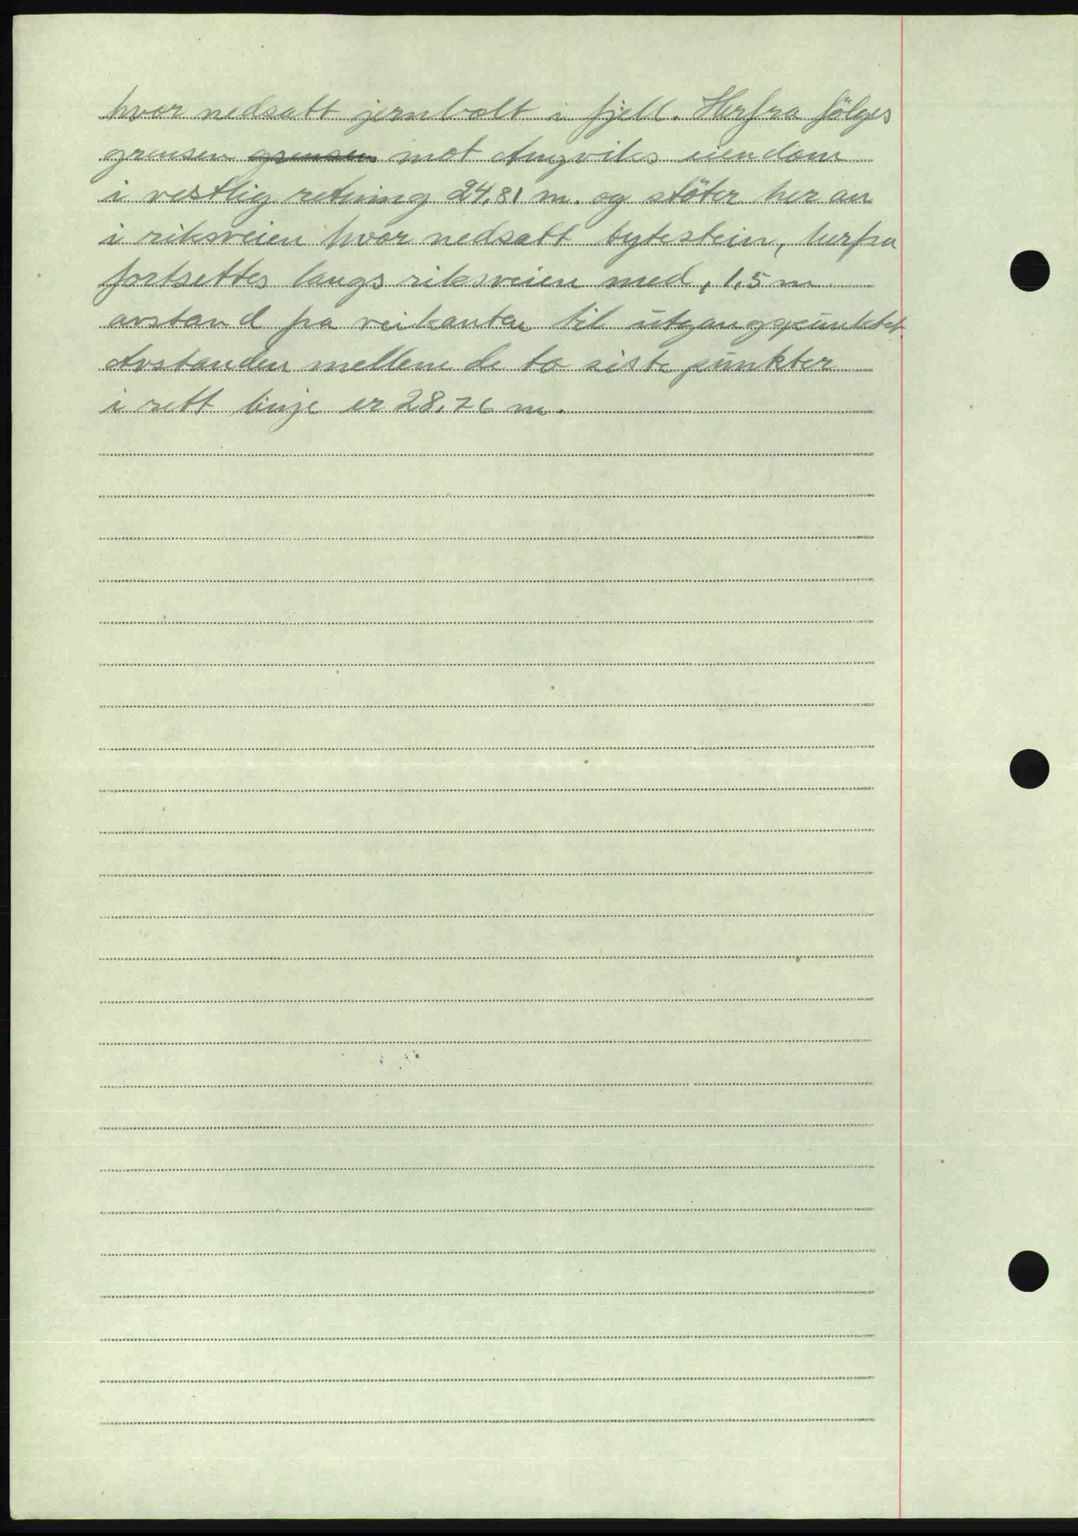 hvor nedsatt jernbolt i fjell. Herfra følges
grensen grensen mot Angviks eiendom
i vestlig retning 24,81 m. og stöter her an
i riksveien hvor nedsatt bytestein, herfra
fortsettes langs riksveien med, 1,5 m
avstand fra veikanten til utgangspunktet.
Avstanden mellem de to siste punkter
i rett linje er 28,76 m.